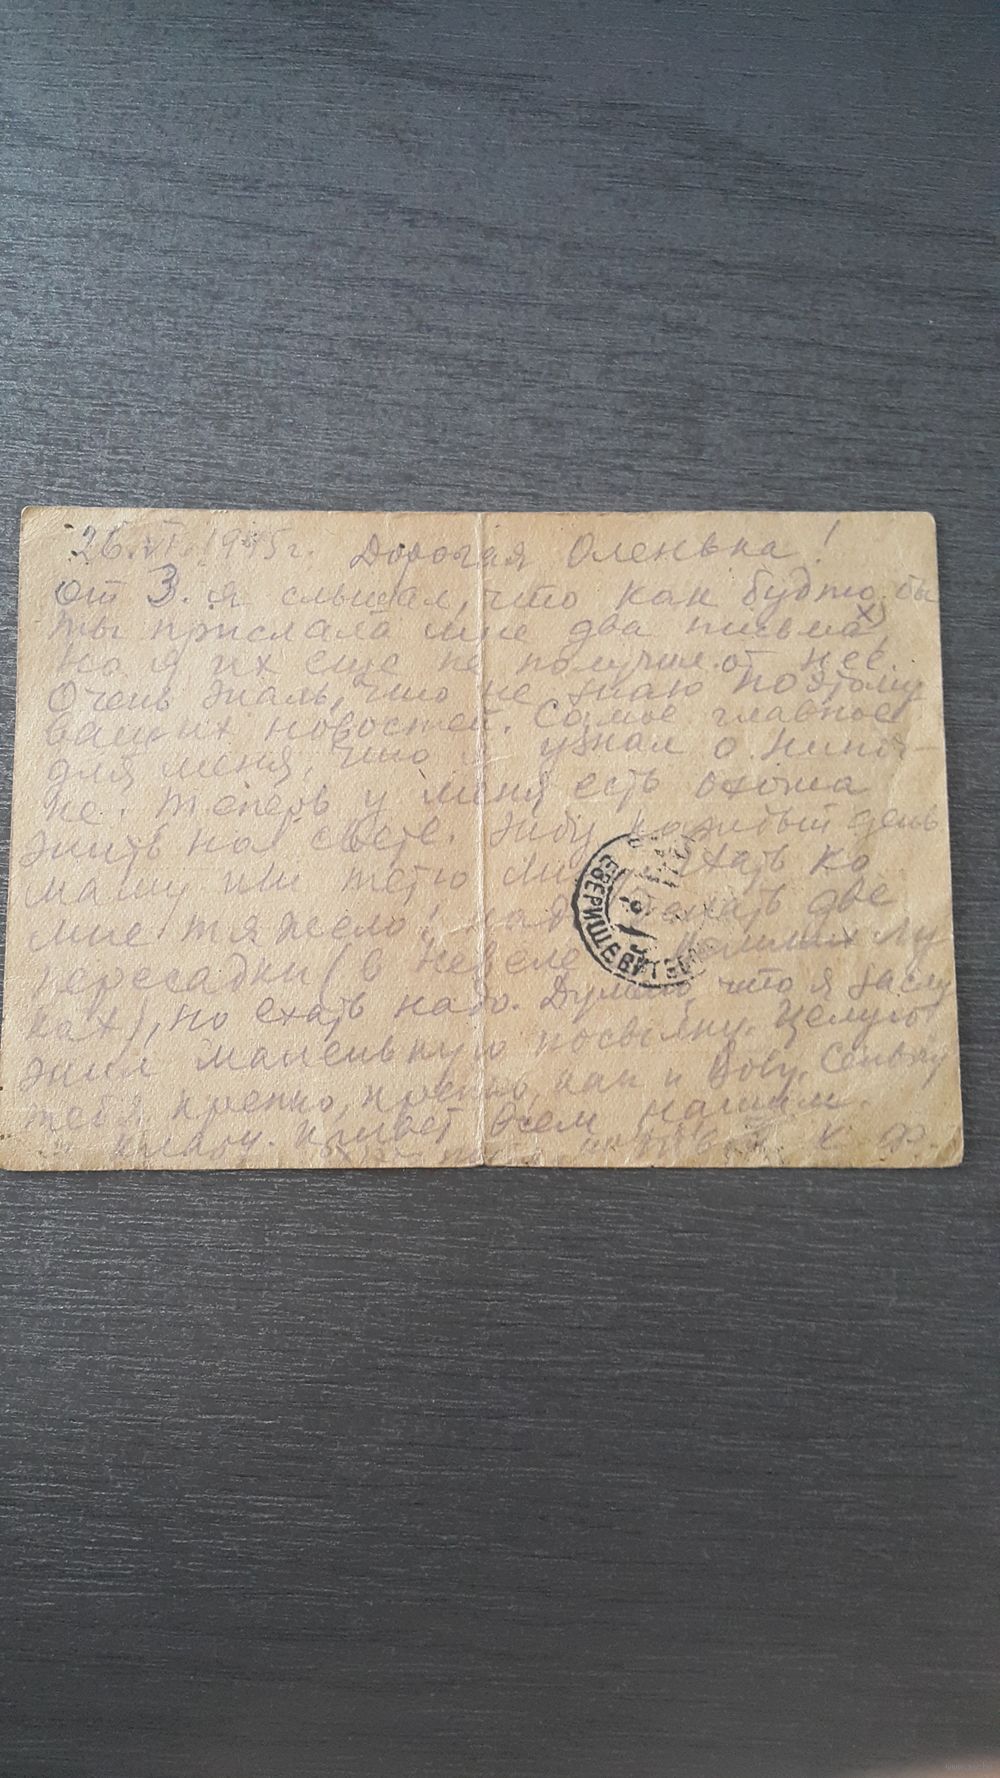 26.VI.1945г. Дорогая Оленька!
от З. я слышал, что как будто бы
ты прислала мне два письма,
но я их еще не получил от нее.
Очень жаль, что не знаю поэтому
ваших новостей. Самое главное
для меня, что я узнал о Нино-
ке. Теперь у меня есть охота
жить на свете. Жду каждый день
маму или тетю ехать ко
мне тяжело! две
пересадки ( Невеле Великих Лу
ках), но ехать надо. Думаю, что я заслу
жил маленькую посылку. Целую
тебя крепко, крепко, как и Вову,
Привет всем нашим.